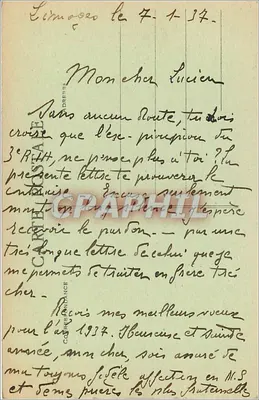 Limoges le 7-1-37.
Mon cher Lucien
Sans aucun doute, tu dois
croire que l'ex-pioupiou du
3e RIH, ne pense plus à toi? La
présente lettre te prouvera le
contraire. Encore seulement
recevoir le pardon — par une
très longue lettre de celui que je
me permets de traiter en frère très
cher.
Reçois mes meilleurs vœux
pour l'an 1937. Heureuse et sainte
année, mon cher, sois assuré de
ma toujours fidèle affection en N.S
et de mes prières les plus fraternelles
CARTE POSTALE
CORRESPONDANCE
ADRESSE
CPAPHIL